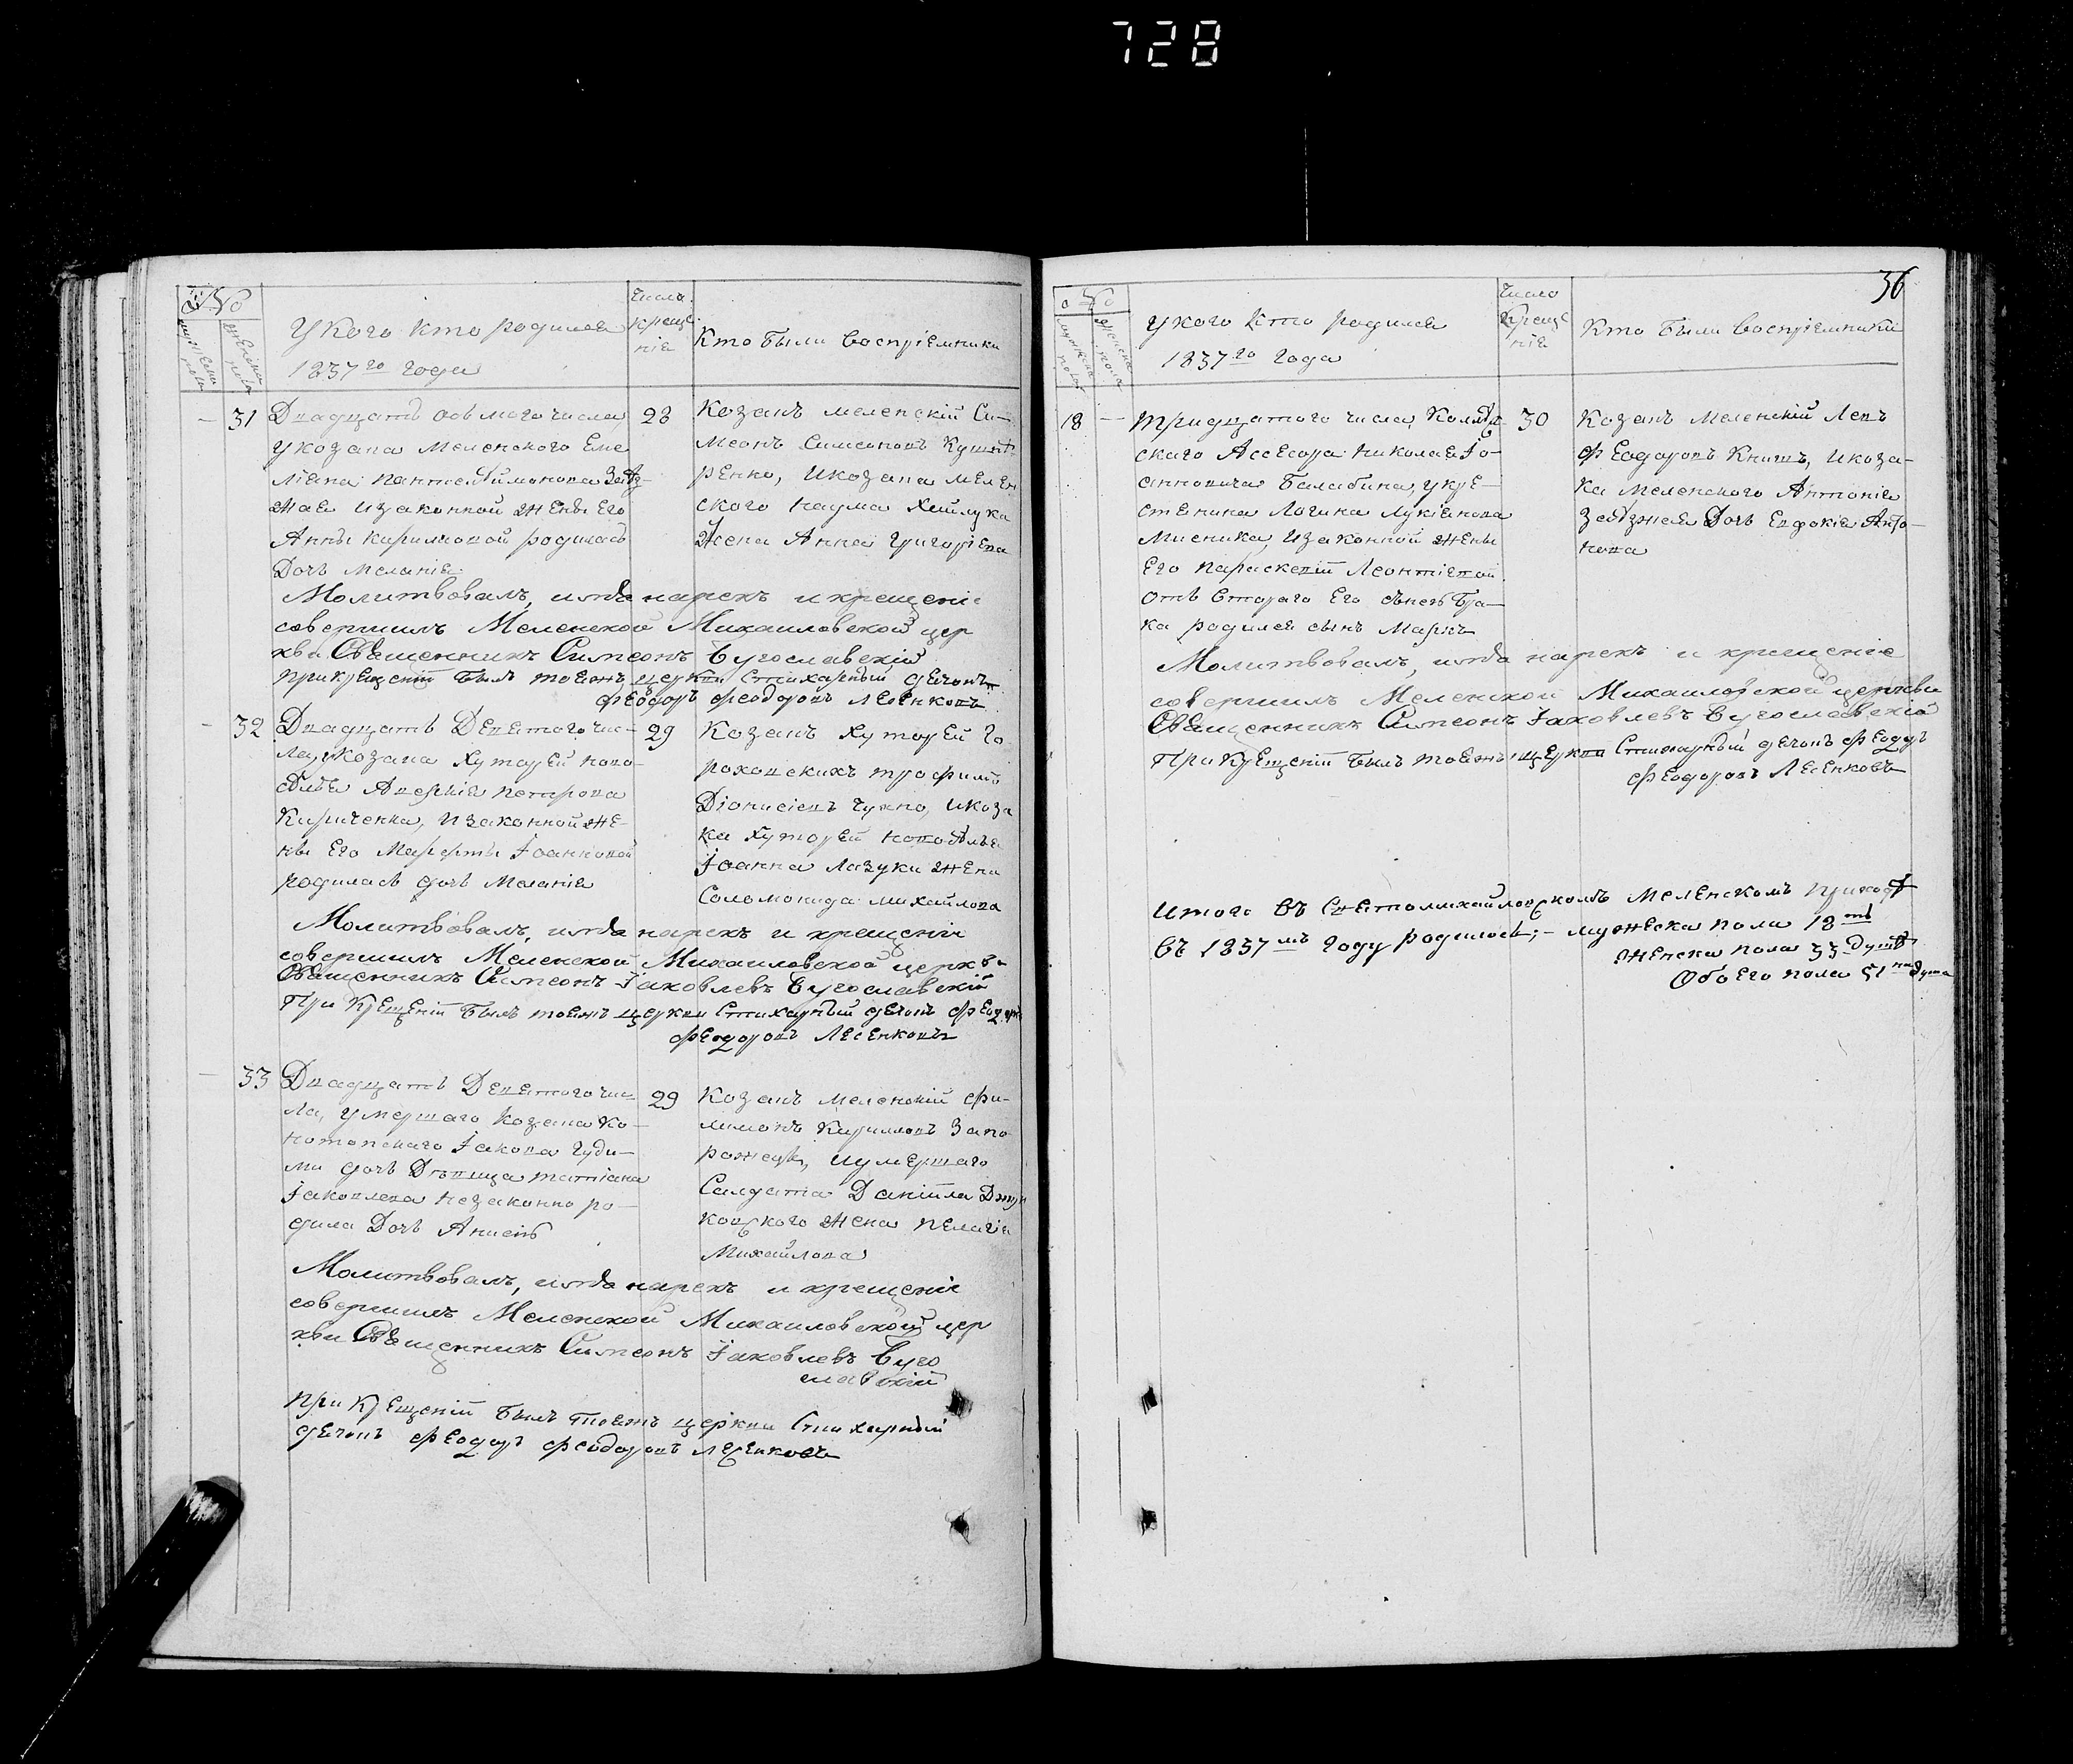 728
№
мужеска пола
женска пола
У кого кто родился
1837го года
Число
креще
нія
Кто были воспріемники
— 31
Двадцать осьмаго числа
у козака Меленского Еме
ліана Пантелеимонова
жая и законной жены Его
Анны Кириловой родилась
Дочь Меланія
28
Козакъ Меленскій Си-
меонъ Симеоновъ
ренко, и козака Мелен
ского Наума
жена Анна Григоріева
Молитвовалъ, имя нарекъ и крещеніе
совершилъ Меленской Михаиловской цер
кви Священникъ Симеонъ Бугославскій
При Крещеніи былъ тоеяжъ церкви Стихарный дьячокъ
Феодоръ Феодоровъ Лесенковъ
— 32
Двадцать Девятого чис-
ла, у Козака Хуторей Ново-
селья Петрова
Кириченка, и законной же-
ны Его Марфы Іоанновой
родилась дочь Меланія
29
Козакъ Хуторей Го-
роховскихъ Трофимъ
Діонисіевъ Чухно, и коза
ка Хуторей Новоселья
Іоанна Лазуки жена
Соломонида Михайлова
Молитвовалъ, имя нарекъ и крещеніе
совершилъ Меленской Михаиловской церкви
Священникъ Симеонъ Іаковлевъ Бугославскій
При Крещеніи былъ тоеяжъ церкви Стихарный дьячокъ Феодоръ
Феодоровъ Лесенковъ
— 33
Двадцать Девятого чис
ла, умершаго козака Ко-
нотопскаго Іакова Гуди-
ми дочь Дѣвица Татіана
Іаковлева незаконно ро-
дила Дочь Анисію
29
Козакъ Меленскій Фи-
лимонъ Кириловъ Запо
рожецъ, и умершаго
Салдата Даніила
ковского жена Пелагія
Михайлова
Молитвовалъ, имя нарекъ и крещеніе
совершилъ Меленской Михаиловской цер
кви Священникъ Симеонъ Іаковлевъ Буго
славскій
При Крещеніи былъ тоежъ церкви Стихарный
дьячокъ Феодоръ Феодоровъ Лесенковъ
36
№
мужеска пола
женска пола
У кого кто родился
1837го года
Число
Креще
нія
Кто были воспріемники
18 —
Тридцатого числа, Коллеж-
скаго Ассесора Николая Іо-
анновича Балабина, у кре-
стьянина Логина Лукіянова
Мисника, и законной жены
Его Параскевіи Леонтіевой
отъ втораго Его сънею бра-
ка родился сынъ Маркъ
30
Козакъ Меленскій Левъ
Феодоровъ Книшъ, и коза-
ка Меленского Антонія
Заезжея Дочь Евфокія Анто-
нова
Молитвовалъ, имя нарекъ и крещеніе
совершилъ Меленской Михаиловской церкви
Священникъ Симеонъ Іаковлевъ Бугославскій
При Крещеніи былъ тоеяжъ церкви Стихарный дьячокъ Феодоръ
Феодоровъ Лесенковъ
Итого въ Святомихайловскомъ Меленскомъ приходѣ
въ 1837мъ году родилось; — мужеска пола 18ть
женска пола 33 души
Обоего пола 51на душа